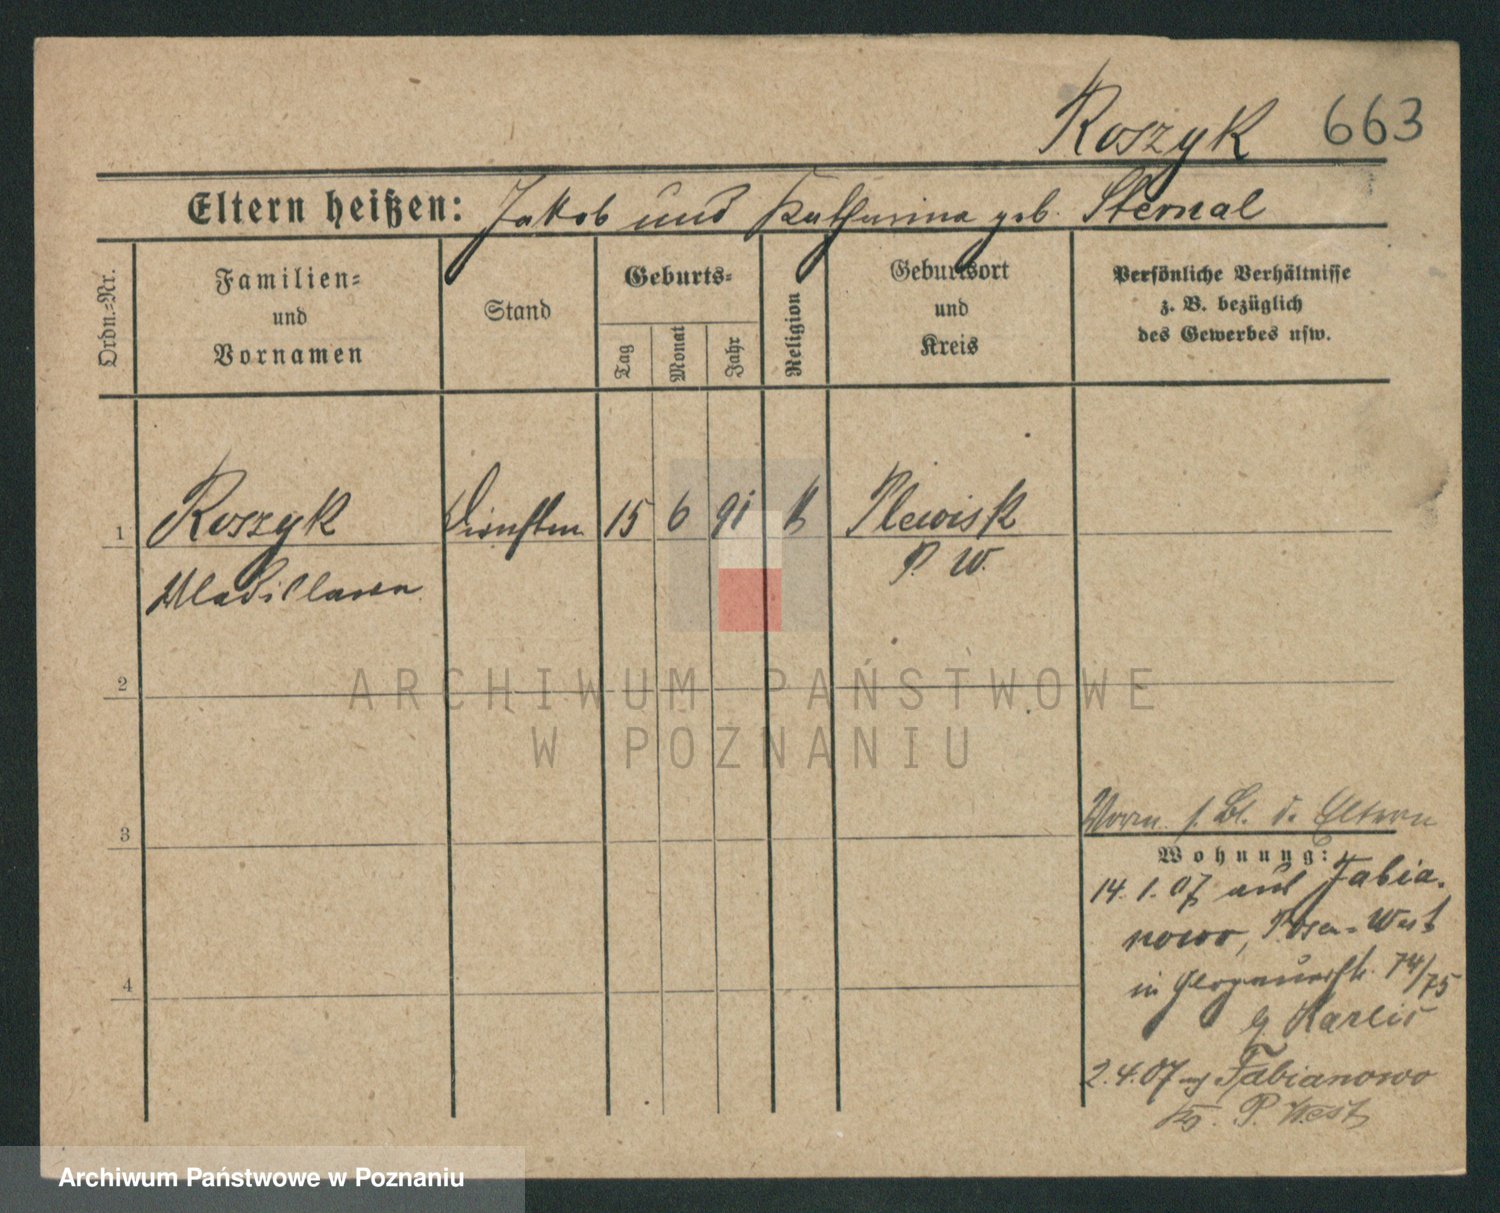 Roszyk 663
Eltern heißen: Jakob und Katharina geb. Sternal
Ordn.=Nr.
Familien=
und
Vornamen
Stand
Geburts=
Tag
Monat
Jahr
Religion
Geburtsort
und
Kreis
Persönliche Verhältnisse
z. B. bezüglich
des Gewerbes usw.
1 Roszyk 15 6 91 k Plewisk
Wladislawa P. W.
2
3
4
s. Bl. d. Eltern
Wohnung:
14. 1. 07 aus Fabia-
nowo, Posen-West
in Glogauerstr. 74/75
b/ Karlis
2.4.07 Fabianowo
Kr. P. West
ARCHIWUM PAŃSTWOWE
W POZNANIU
Archiwum Państwowe w Poznaniu